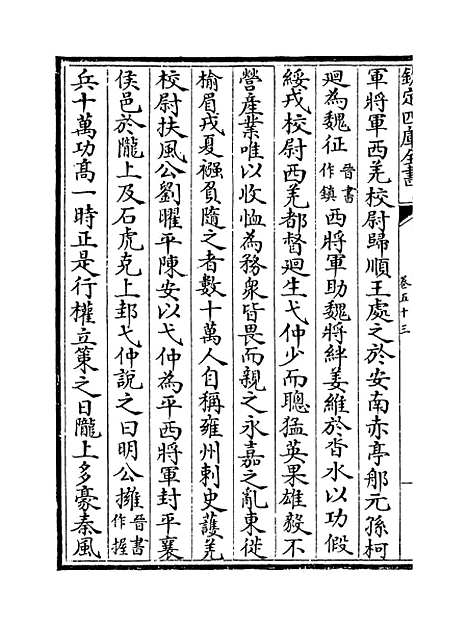 欽定四庫全書
卷五十三
一
軍將軍西羌校尉歸順王處之於安南赤亭郍元孫柯
廻為魏征晉書作鎮西將軍助魏將絆姜維於沓水以功假
綏戎校尉西羌都督廻生弋仲少而聰猛英果雄毅不
營產業唯以收恤為務衆皆畏而親之永嘉之亂東徙
榆眉戎夏襁負隨之者數十萬人自稱雍州刺史護羌
校尉扶風公劉曜平陳安以弋仲為平西將軍封平襄
侯邑於隴上及石虎克上邽弋仲說之曰明公擁晉書作握
兵十萬功髙一時正是行權立策之日隴上多豪秦風